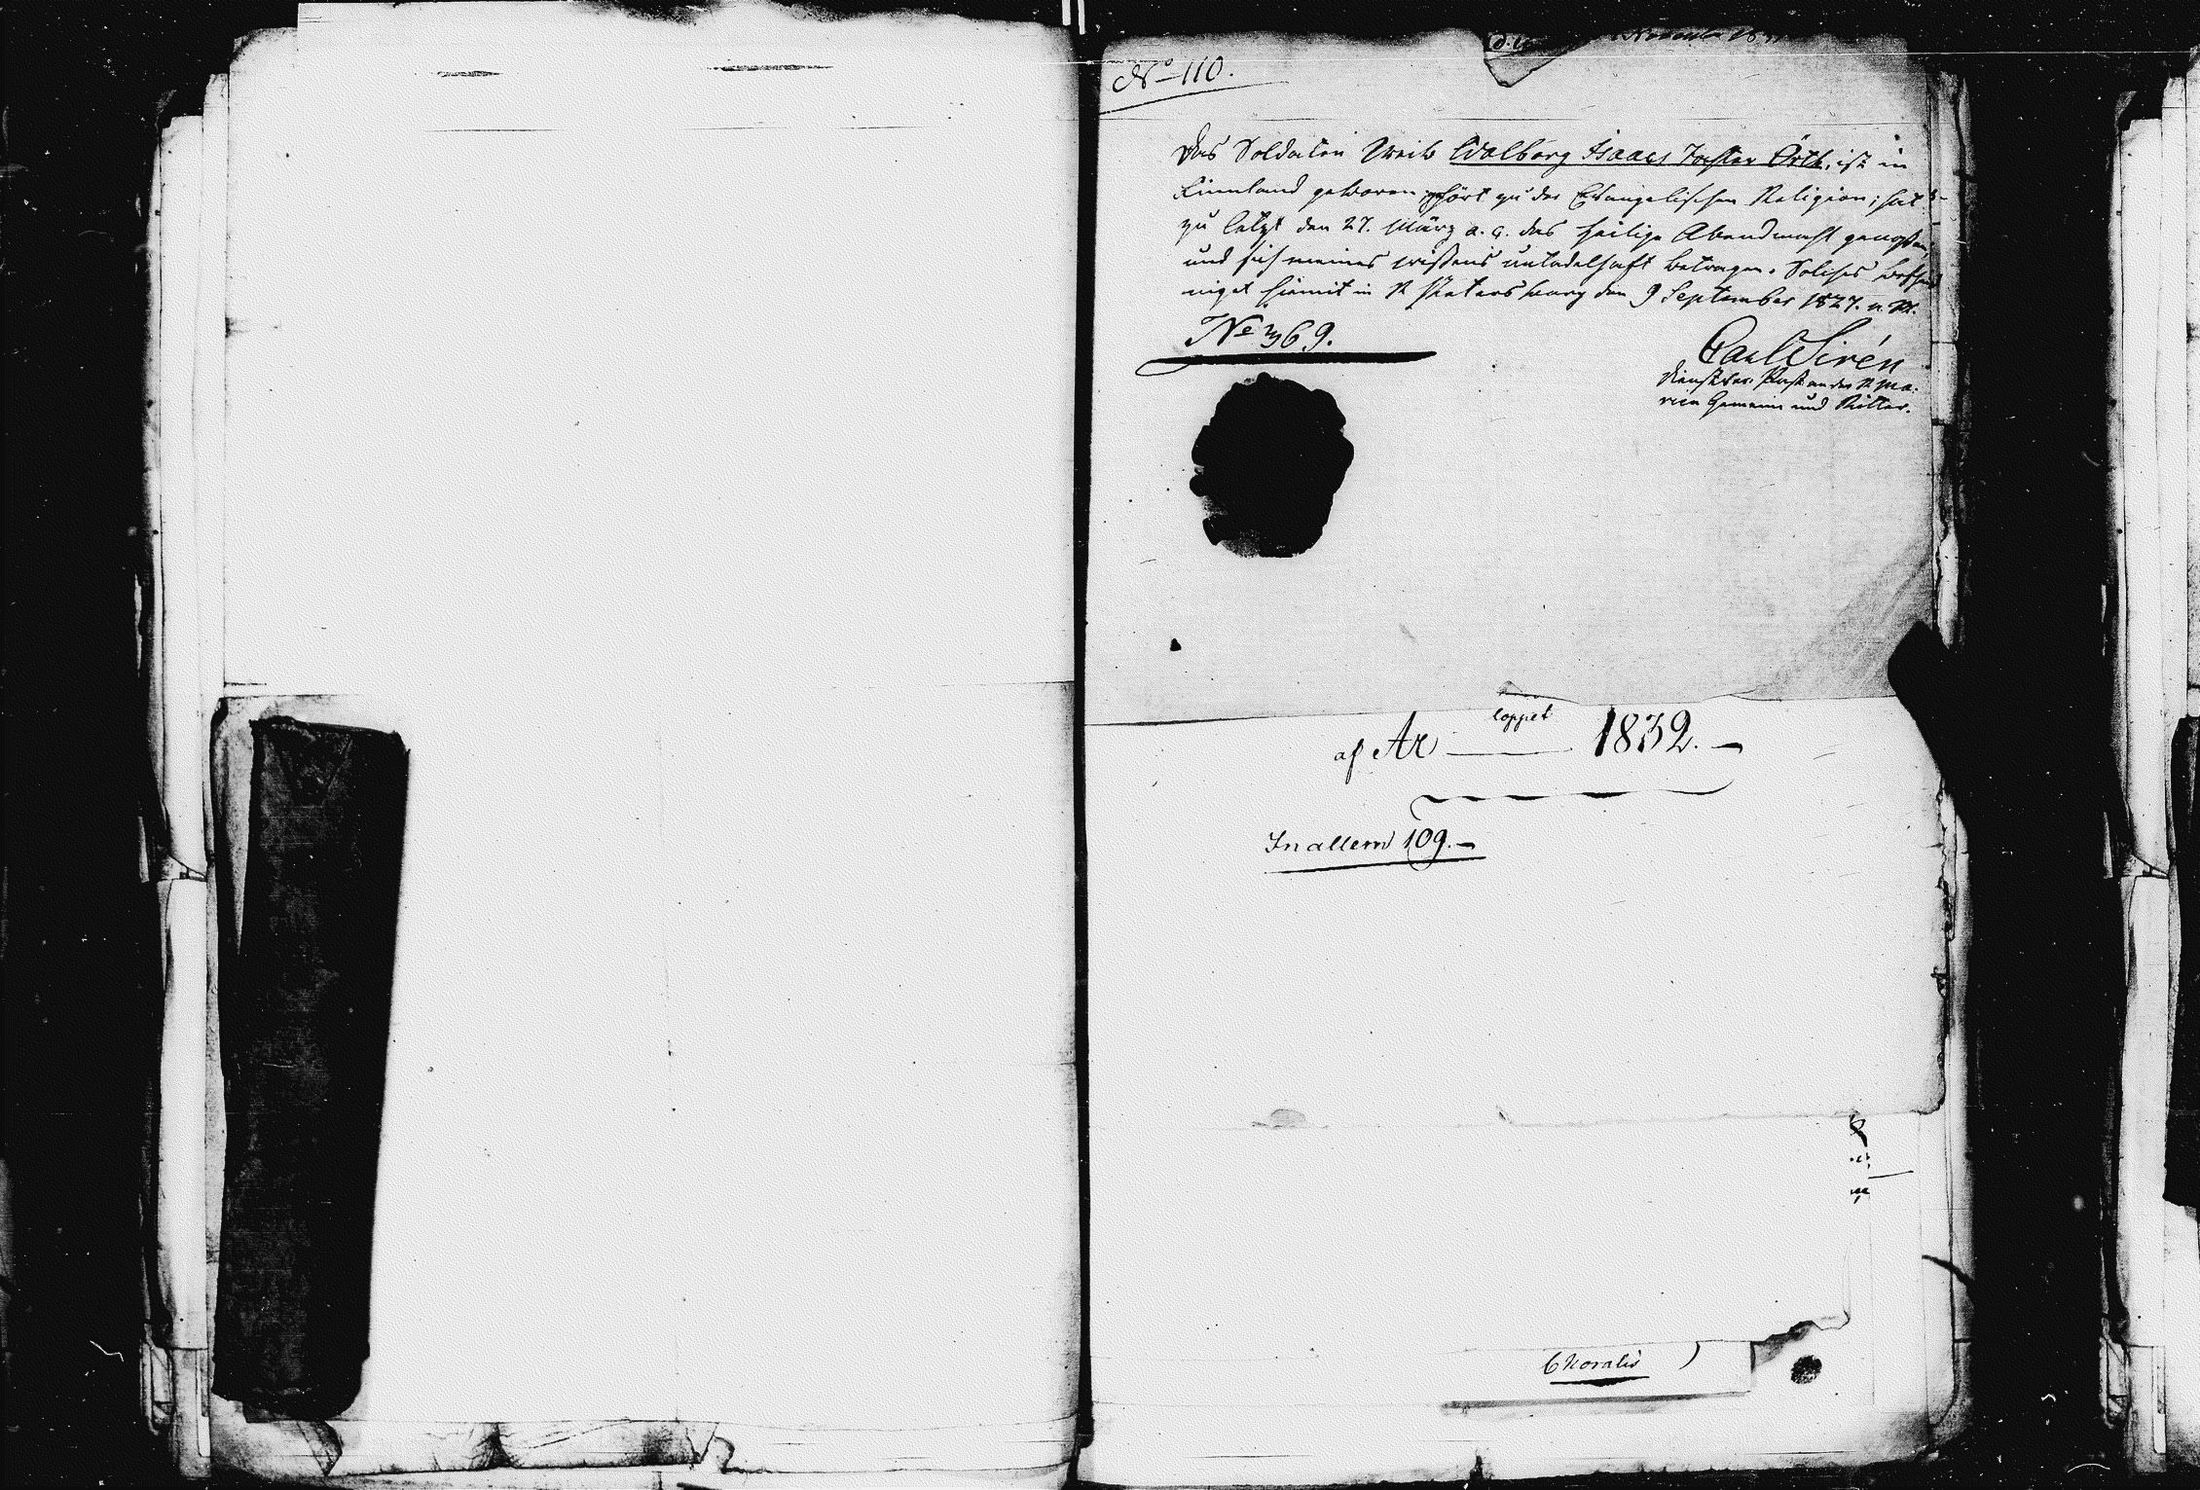 No 110.
Das Soldaten Weib Walborg Isaacs Tochter Örth, ist in
Finnland geboren gehört zu der Evangelischen Religion; hat
zu letzt den 27. März a. c. das heilige Abendmahl genoßen,
und sich meines wißens untadelhaft betragen. Solches beschei
niget hiemit in St Petersburg den 9 September 1827. n. St.
No 369.
Carl Sirén
Past an der St Ma-
rien Gemeine und Ritter.
loppet
af År 1832.
In allem 109.